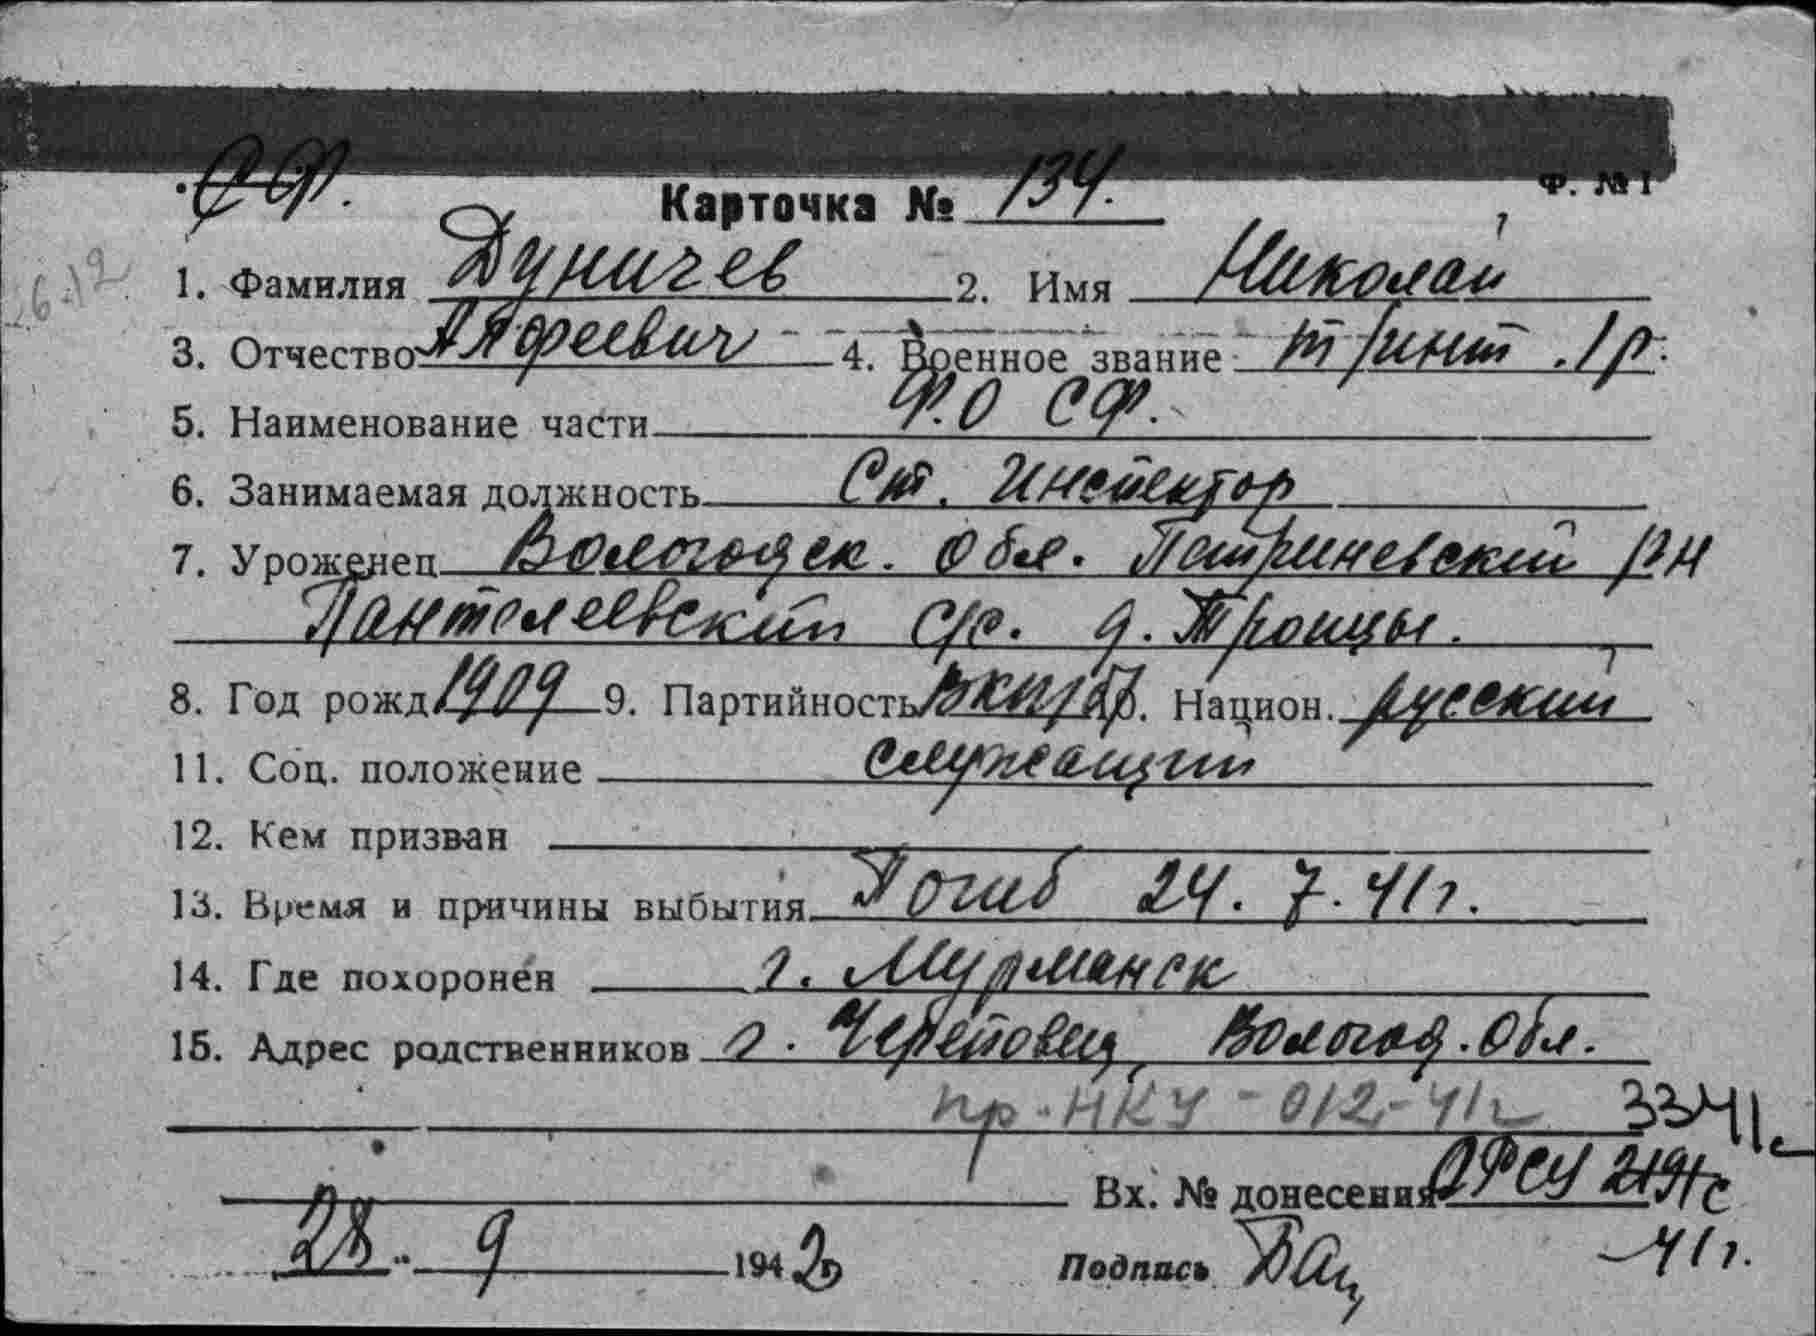 СФ.
Карточка № 134. Ф. № 1
1. Фамилия Дуничев 2. Имя Николай
3. Отчество Алфеевич 4. Военное звание т/инт. 1 р.
5. Наименование части Ф.О СФ.
6. Занимаемая должность Ст. Инспектор
7. Уроженец Вологодск. Обл. Петриневский р-н
Пантелеевский С/с. д. Троицы.
8. Год рожд. 1909 9. Партийность ВКП/б/ Национ. русский
11. Соц. положение служащий
12. Кем призван
13. Время и причины выбытия Погиб 24. 7. 41 г.
14. Где похоронен г. Мурманск
15. Адрес родственников г. Череповец, Вологод. Обл.
пр. НКУ - 012 - 41 г 3341с
Вх. № донесения ОРСУ
28. 9 1942 Подпись 41 г.